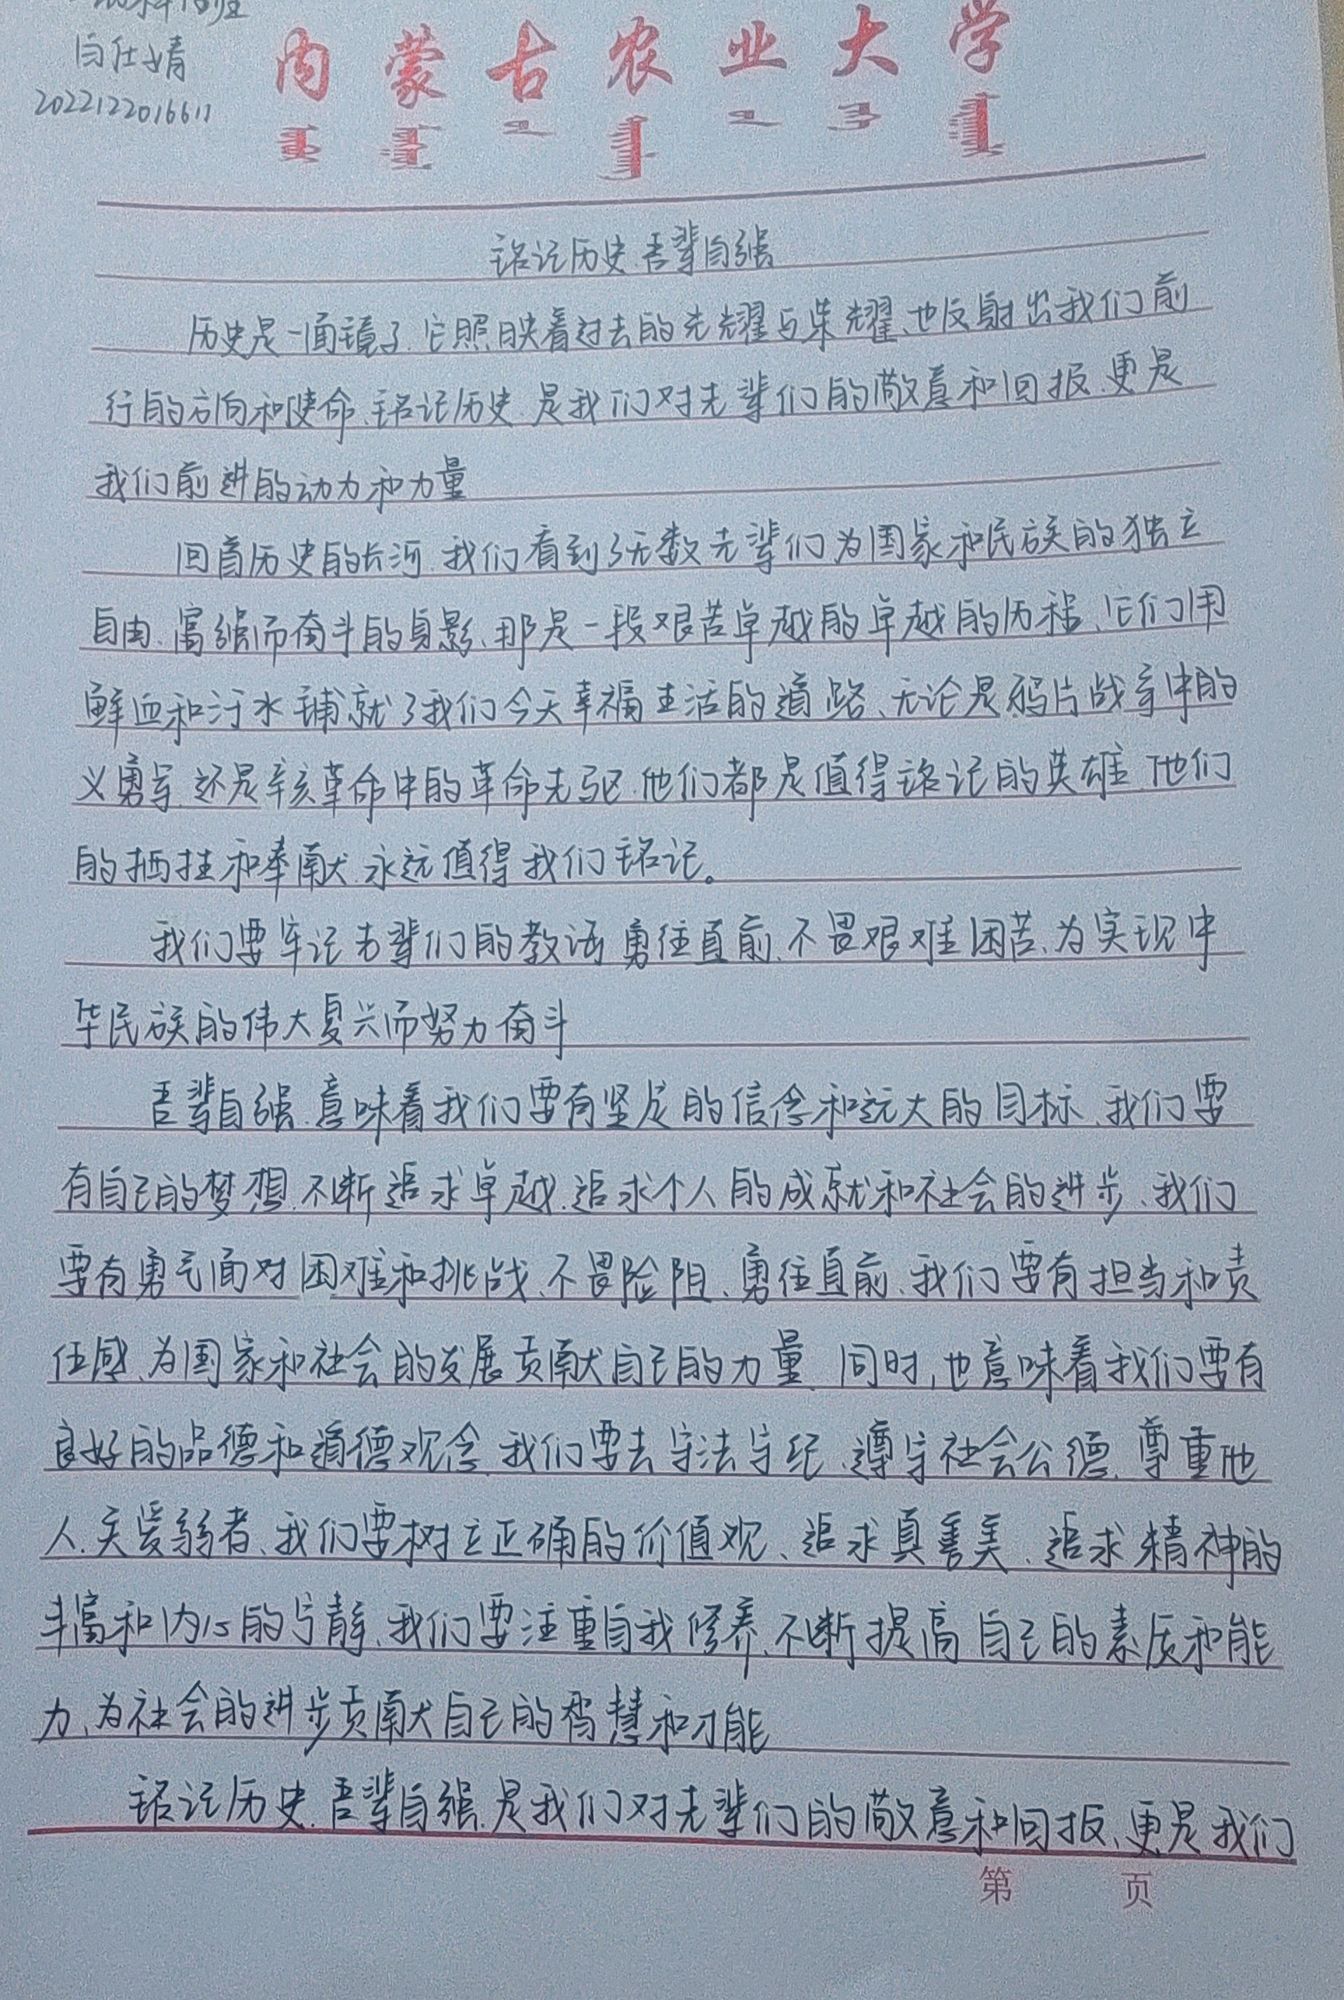 白仕婧
2022122016611
内蒙古农业大学
铭记历史、吾辈自强
历史是一面镜子、它照映着过去的光耀与荣耀、也反射出我们前
行的方向和使命、铭记历史、是我们对先辈们的敬意和回报、更是
我们前进的动力和力量
回首历史的长河、我们看到了无数先辈们为国家和民族的独立
自由、富强而奋斗的身影、那是一段艰苦卓越的卓越的历程、它们用
鲜血和汗水铺就了我们今天幸福生活的道路、无论是鸦片战争中的
义勇军、还是辛亥革命中的革命先驱、他们都是值得铭记的英雄、他们
的牺牲和奉献、永远值得我们铭记。
我们要牢记先辈们的教诲、勇往直前、不畏艰难困苦、为实现中
华民族的伟大复兴而努力奋斗
吾辈自强、意味着我们要有坚定的信念和远大的目标、我们要
有自己的梦想、不断追求卓越、追求个人的成就和社会的进步、我们
要有勇气面对困难和挑战、不畏险阻、勇往直前、我们要有担当和责
任感、为国家和社会的发展贡献自己的力量、同时,也意味着我们要有
良好的品德和道德观念、我们要去守法守纪、遵守社会公德、尊重他
人、关爱弱者、我们要树立正确的价值观、追求真善美、追求精神的
丰富和内心的宁静、我们要注重自我修养、不断提高自己的素质和能
力、为社会的进步贡献自己的智慧和才能
铭记历史、吾辈自强、是我们对先辈们的敬意和回报、更是我们
第 页